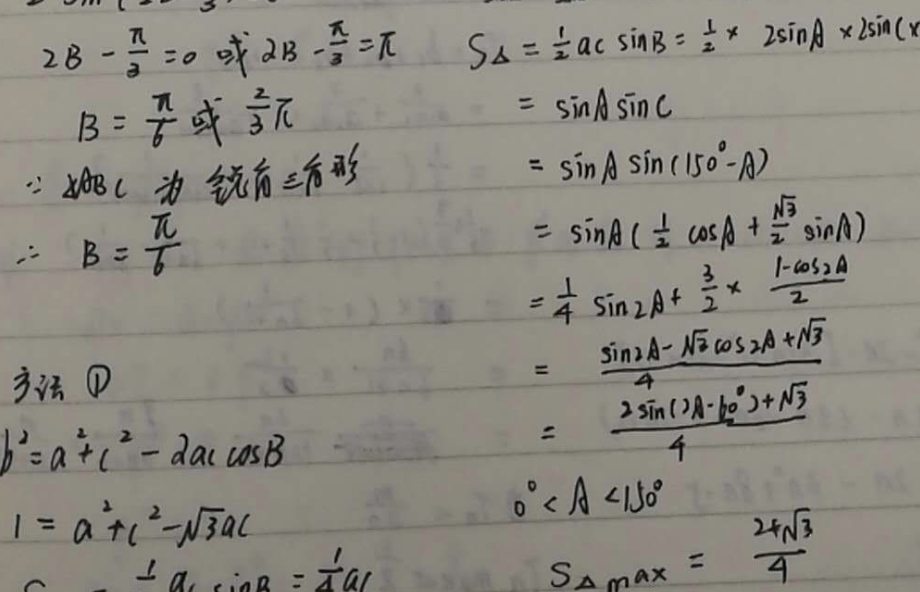 2B - π/3 = 0 或 2B - π/3 = π
B = π/6 或 2/3 π
∵ △ABC 为 锐角三角形
∴ B = π/6
方法 ①
b² = a² + c² - 2ac cosB
1 = a² + c² - √3 ac
= 1/4 ac
S△ = 1/2 ac sinB = 1/2 × 2sinA × 2sinC ×
= sinA sinC
= sinA sin(150° - A)
= sinA ( 1/2 cosA + √3/2 sinA)
= 1/4 sin2A + 3/2 × (1-cos2A)/2
= (sin2A - √3 cos2A + √3)/4
= (2sin(2A - 60°) + √3)/4
0° < A < 150°
S△max = (2+√3)/4